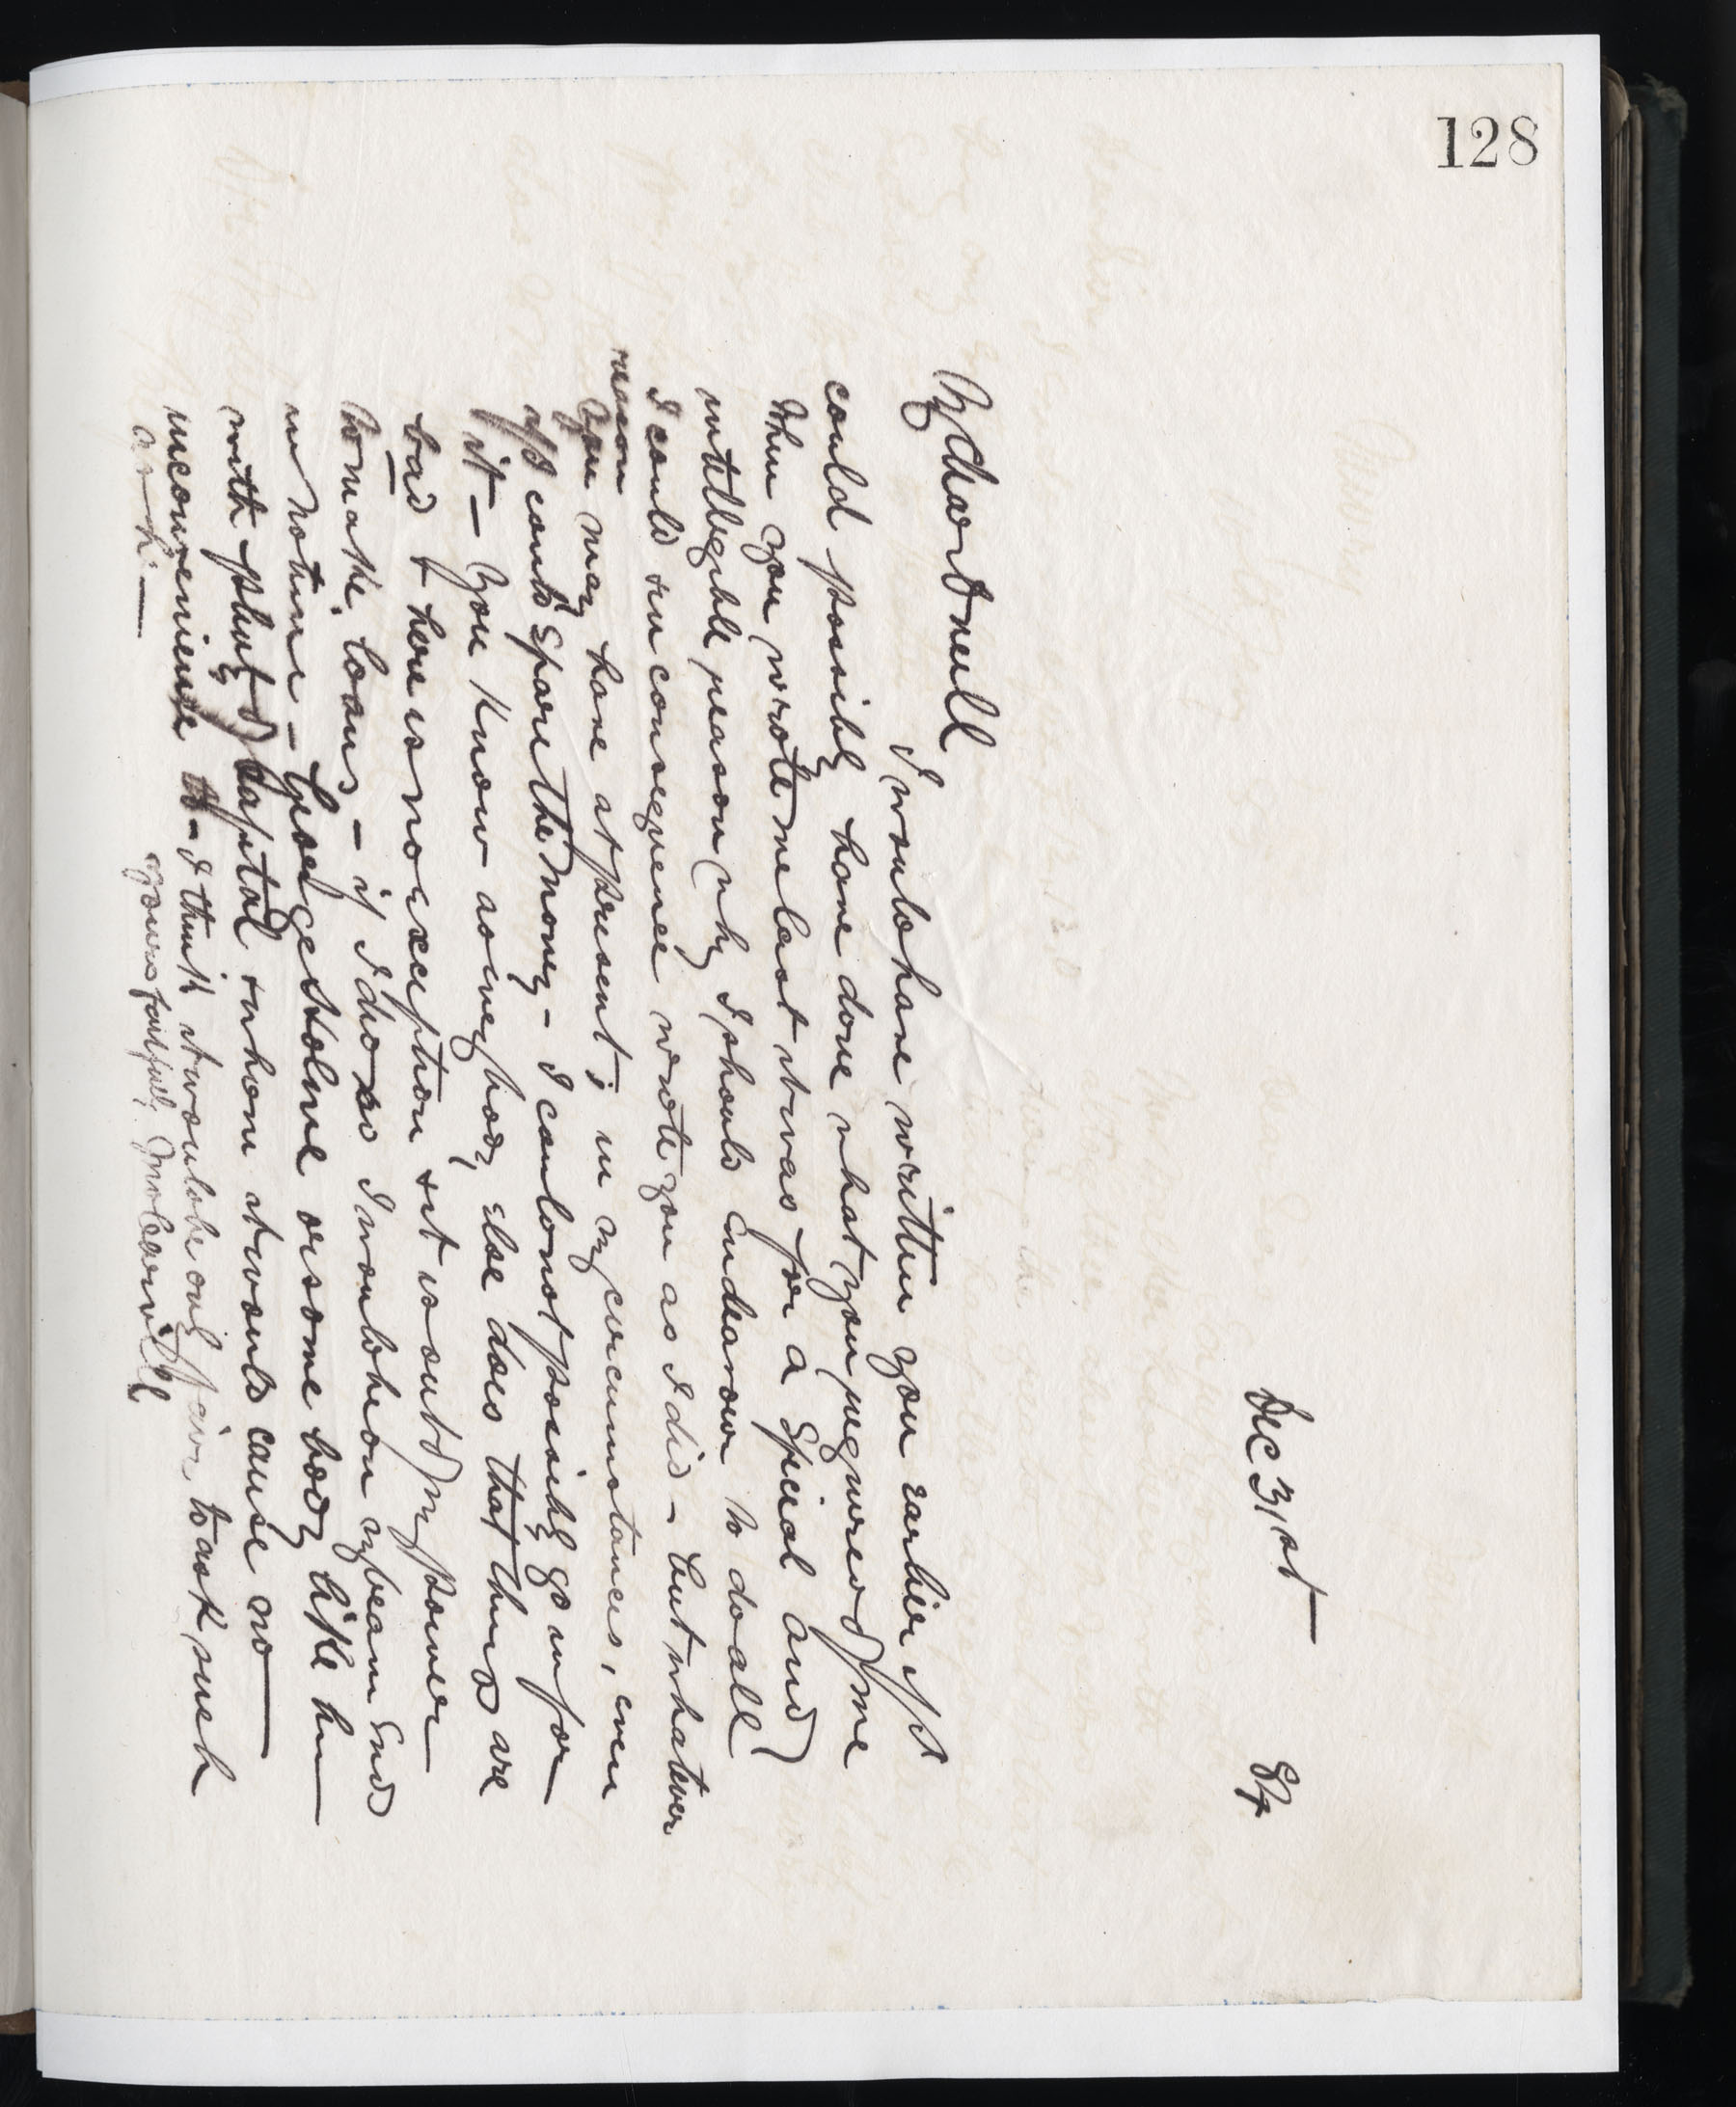 128
Dec 31st 84
My dear O'Neill
I would have written you earlier if I
could possibly have done what you required of me
When you wrote me last it was for a Special and
intelligible reason why I should Endeavour to do all
I could & in consequence wrote you as I did - but whatever
reason
you may have at present, in my circumstances, even
if I could Spare the money - I could not possibly go in for
it - You know as everybody else does that things are
bad & here is no exception & it is out of my power
to make loans - if I do so I would be on my beam Ends
in no time - Good or some body like him
with plenty of Capital & whom it would cause no
inconvenience to - I think it would be only fair to ask such
a
yours faithfully